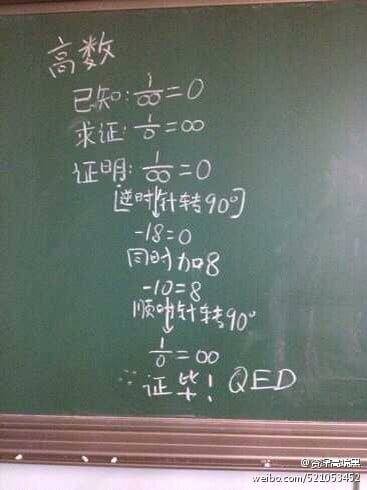 高数
已知: 1/∞ = 0
求证: 1/0 = ∞
证明: 1/∞ = 0
[逆时针转90°]
-18=0
同时加8
-10=8
顺时针转90°
1/0 = ∞
∴证毕! QED
weibo.com/521053452